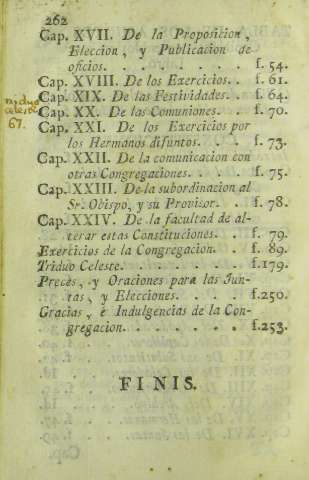 262
Cap. XVII. De la Proposicion,
Eleccion, y Publicacion de
oficios. . . . . . . . . . f. 54.
Cap. XVIII. De los Exercicios. . f. 61.
Cap. XIX. De las Festividades. . f. 64.
Cap. XX. De las Comuniones. . f. 70.
Cap. XXI. De los Exercicios por
los Hermanos difuntos. . . f. 73.
Cap. XXII. De la comunicacion con
otras Congregaciones. . . . f. 75.
Cap. XXIII. De la subordinacion al
Sr. Obispo, y su Provisor. . f. 78.
Cap. XXIV. De la facultad de al-
terar estas Constituciones. . f. 79.
Exercicios de la Congregacion. . f. 89.
Triduo Celeste. . . . . . . f.179.
Preces, y Oraciones para las Jun-
tas, y Elecciones. . . . . f.250.
Gracias, è Indulgencias de la Con-
gregacion. . . . . . . . f.253.
FINIS.
67.